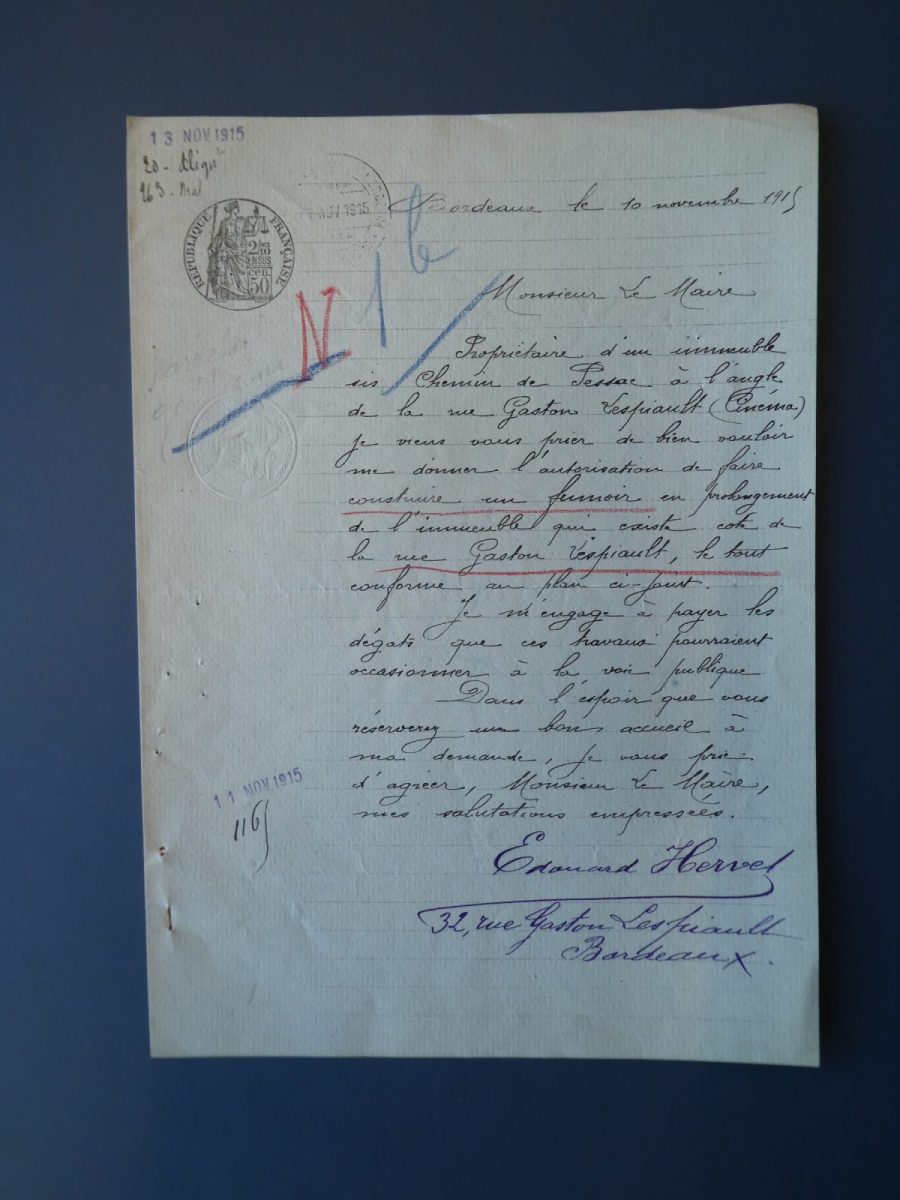 13 NOV. 1915
20 - Align
263 - Mal
NOV 1915
Bordeaux le 10 novembre 1915
RÉPUBLIQUE FRANÇAISE
2/10 EN SUS
50 cen
N 1
Monsieur Le Maire
Propriétaire d'un immeuble
sis Chemin de Pessac à l'angle
de la rue Gaston Lespiault (Cinéma)
je viens vous prier de bien vouloir
me donner l'autorisation de faire
construire un fumoir en prolongement
de l'immeuble qui existe coté de
la rue Gaston Lespiault, le tout
conforme au plan ci-joint.
Je m'engage à payer les
dégats que ces travaux pourraient
occasionner à la voie publique
Dans l'espoir que vous
réserverez un bon accueil à
ma demande, je vous prie
d'agréer, Monsieur Le Maire,
mes salutations empressées.
11 NOV. 1915
1165
Edouard Hervet
32, rue Gaston Lespiault
Bordeaux.